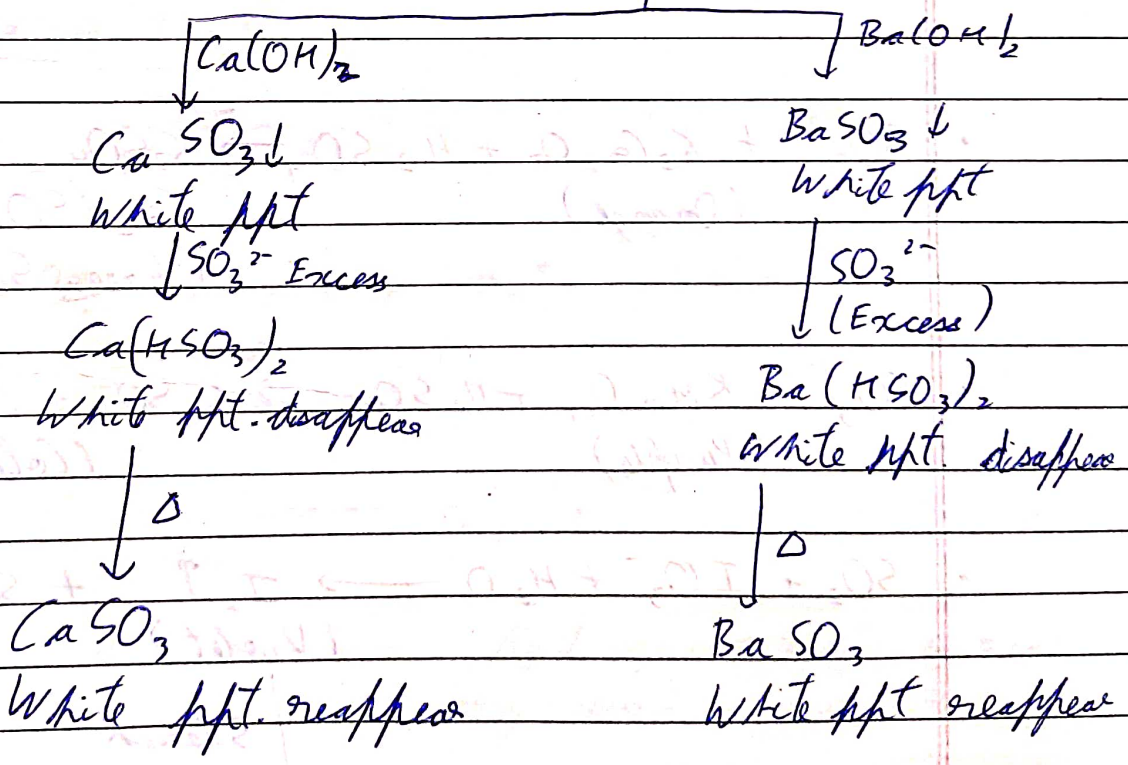 Ca(OH)₂
CaSO₃↓
White ppt
SO₃²⁻ Excess
Ca(HSO₃)₂
White ppt. disappear
Δ
CaSO₃
White ppt. reappear
Ba(OH)₂
BaSO₃↓
White ppt
SO₃²⁻
(Excess)
Ba(HSO₃)₂
White ppt. disappear
Δ
BaSO₃
White ppt reappear